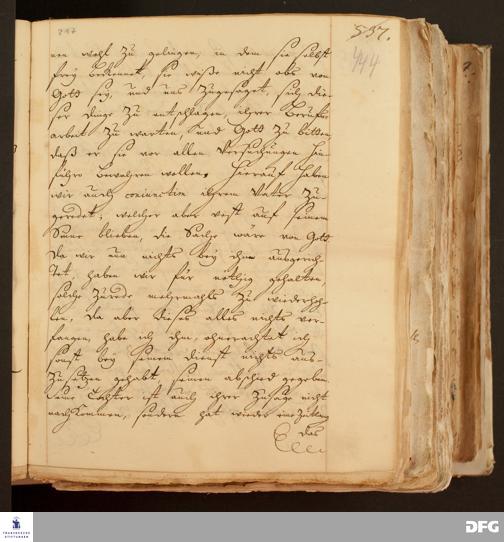 337.
444
nen wohl zu gelingen, in dem sie selbst
frey bekennet, sie wiße nicht obs von
Gott sey, und uns zugesaget, sich die-
ser dinge zu entschlagen, ihrer Beruffs
arbeit zu warten, und Gott zu bitten,
daß er sie vor allen Versuchungen hin-
führo bewahren wolle. Hierauf haben
wir auch coniunctim ihrem Vater zu-
geredet; welcher aber vest auf seinem
Sinne blieben, die Sache wäre von Gott
Da wir nun nichts bey ihm ausgerich-
tet, haben wir für nöthig gehalten,
solche Zurede mehrmahls zu wiederhoh-
len. Da aber dieses alles nichts ver-
fangen, habe ich ihm, ohnerachtet ich
sonst bey seinem dienst nichts aus-
zusetzen gehabt, seinen abschied gegeben.
Seine Tochter ist auch ihrer Zusage nicht
nachkommen, sondern hat wieder eine
das
FRANCKESCHE STIFTUNGEN
DFG